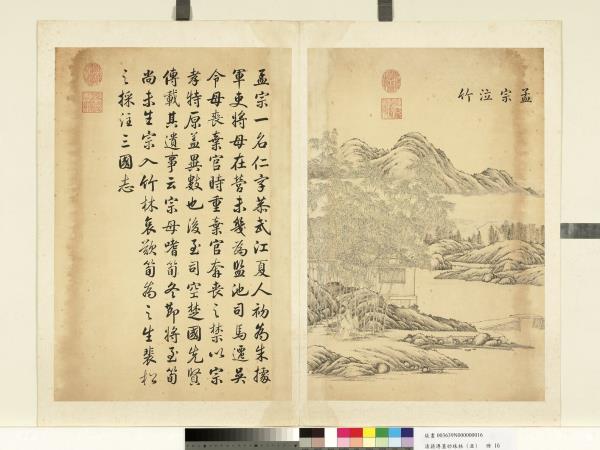 孟宗泣竹
孟宗一名仁字恭武江夏人初為朱據
軍吏將母在營未幾為監池司馬遷吳
令母喪棄官時重棄官奔喪之禁以宗
孝特原盖異數也後至司空楚國先賢
傳載其遺事云宗母嗜筍冬節將至筍
尚未生宗入竹林哀歎筍為之生裴松
之採注三國志
故畫 003639N000000016